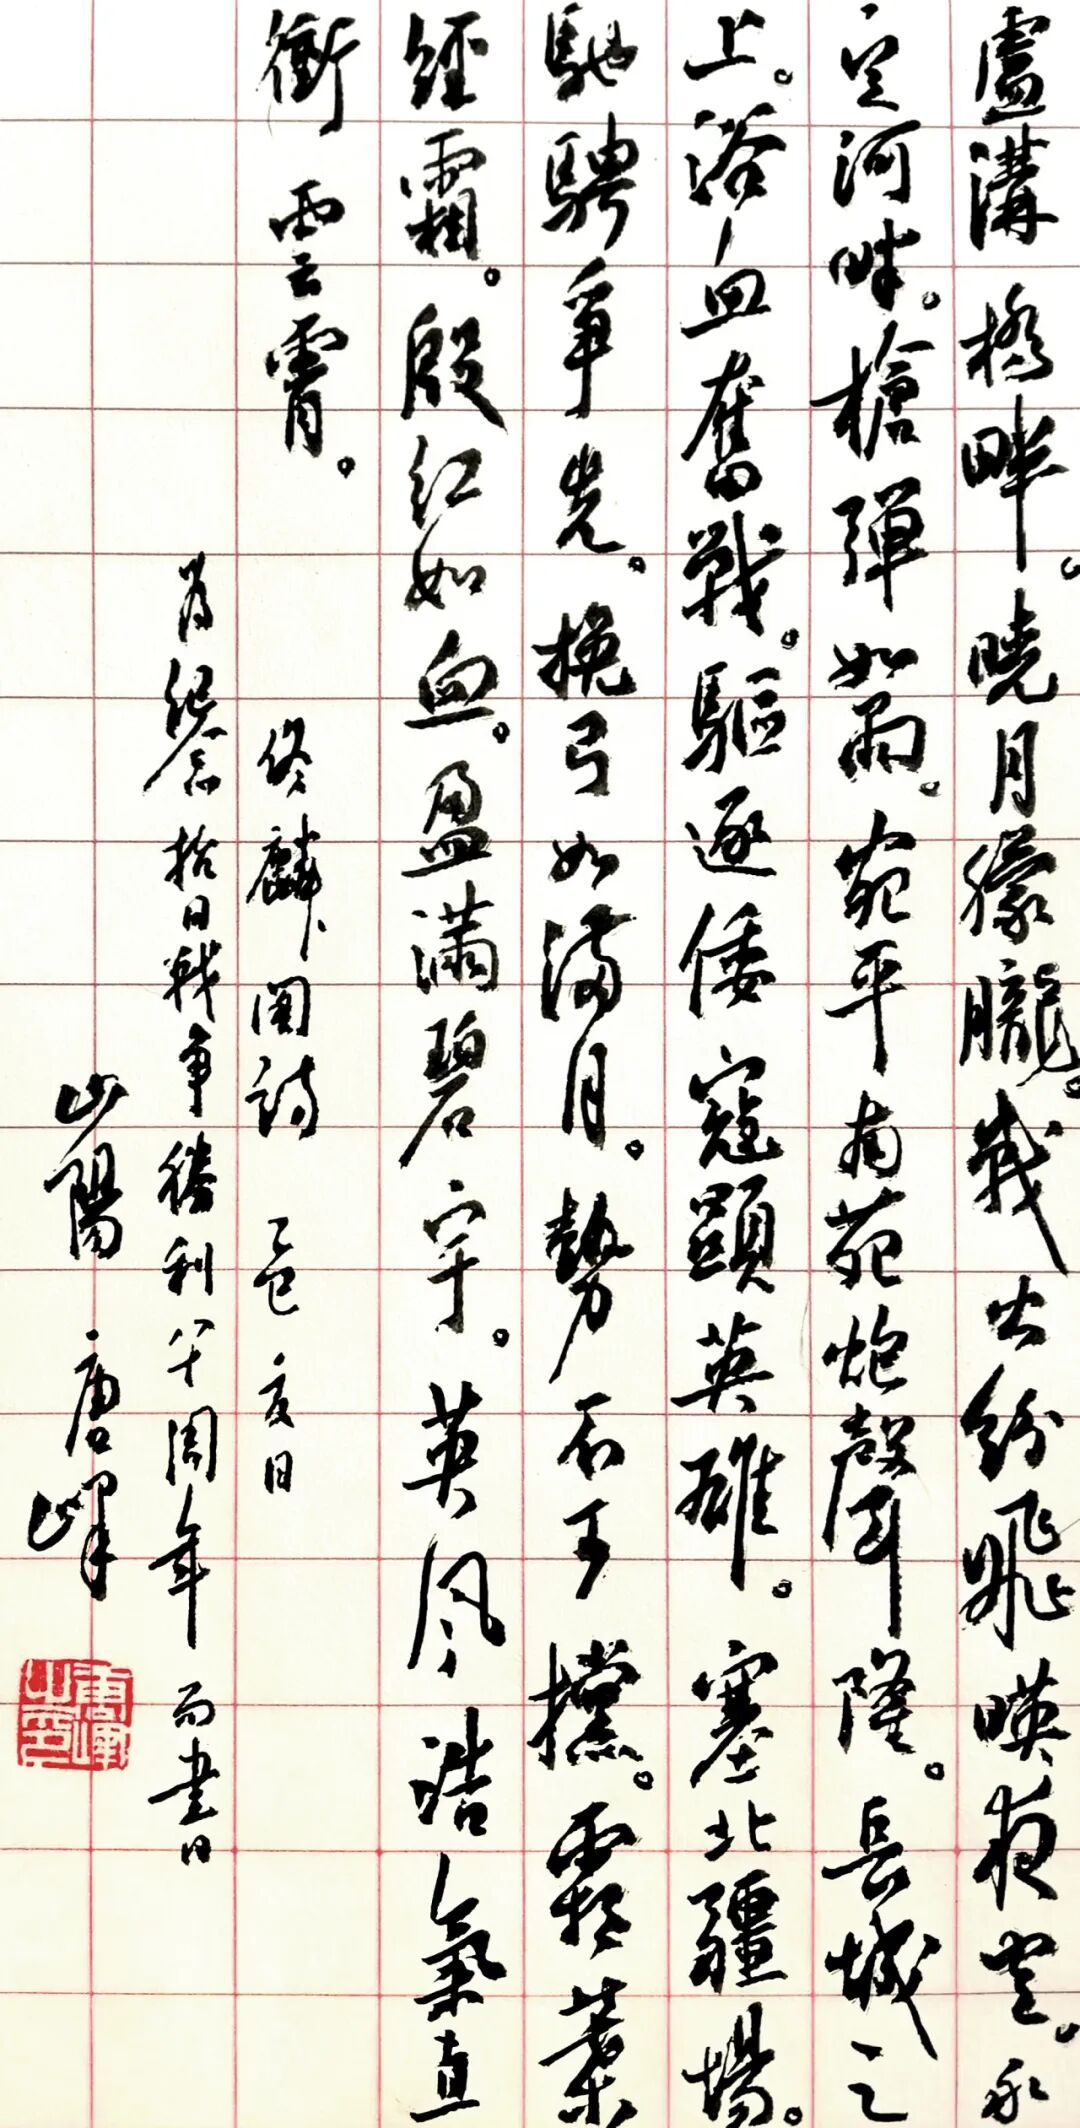 盧溝橋畔。曉月朦朧。戰火紛飛映夜空。永
定河畔。槍彈如雨。宛平南苑炮聲隆。長城之
上。浴血奮戰。驅逐倭寇顯英雄。塞北疆場。
馳騁爭先。挽弓如滿月。勢不可擋。霜葉
經霜。殷紅如血。盈滿碧宇。英風浩氣直
衝雲霄。
佟麟閣詩 乙巳夏日
為紀念抗日戰爭勝利八十周年而書
山陽 唐峰